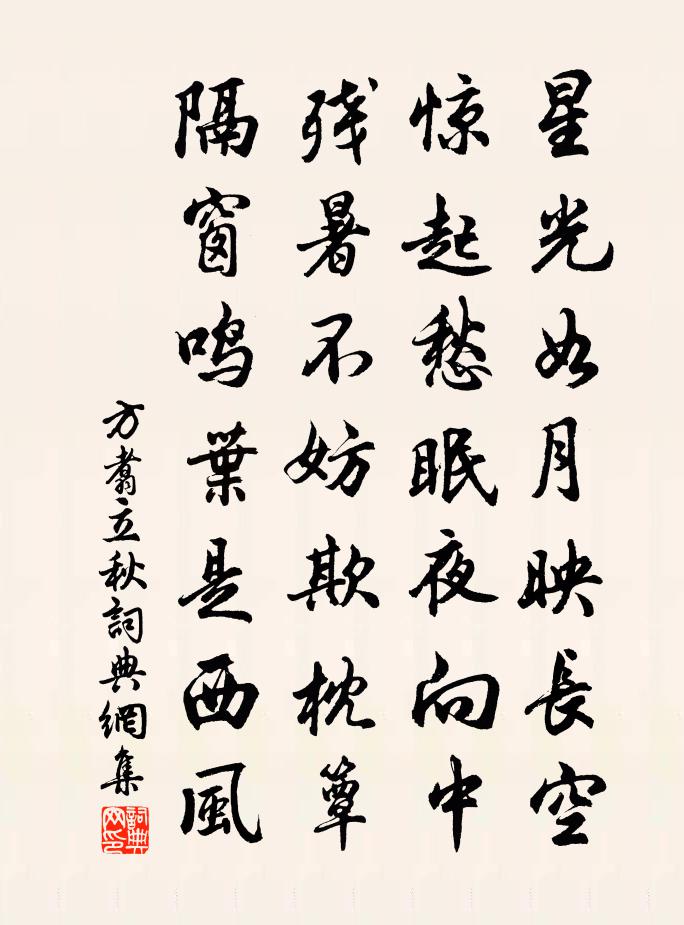 星光如月映長空
惊起愁眠夜向中
残暑不妨欺枕簟
隔窗鳴葉是西風
方翥立秋詞典網集
詞典网印